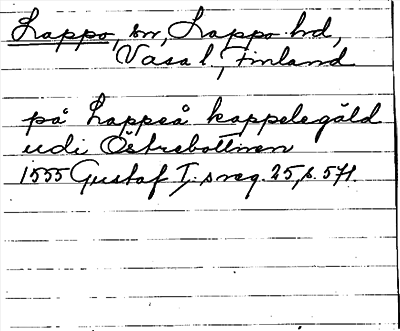 Lappo, sn, Lappo hd,
Vasa l., Finland
på Lappeå kappelegäld
udi Östrebottnen
1555 Gustaf I:s reg. 25, s. 571.